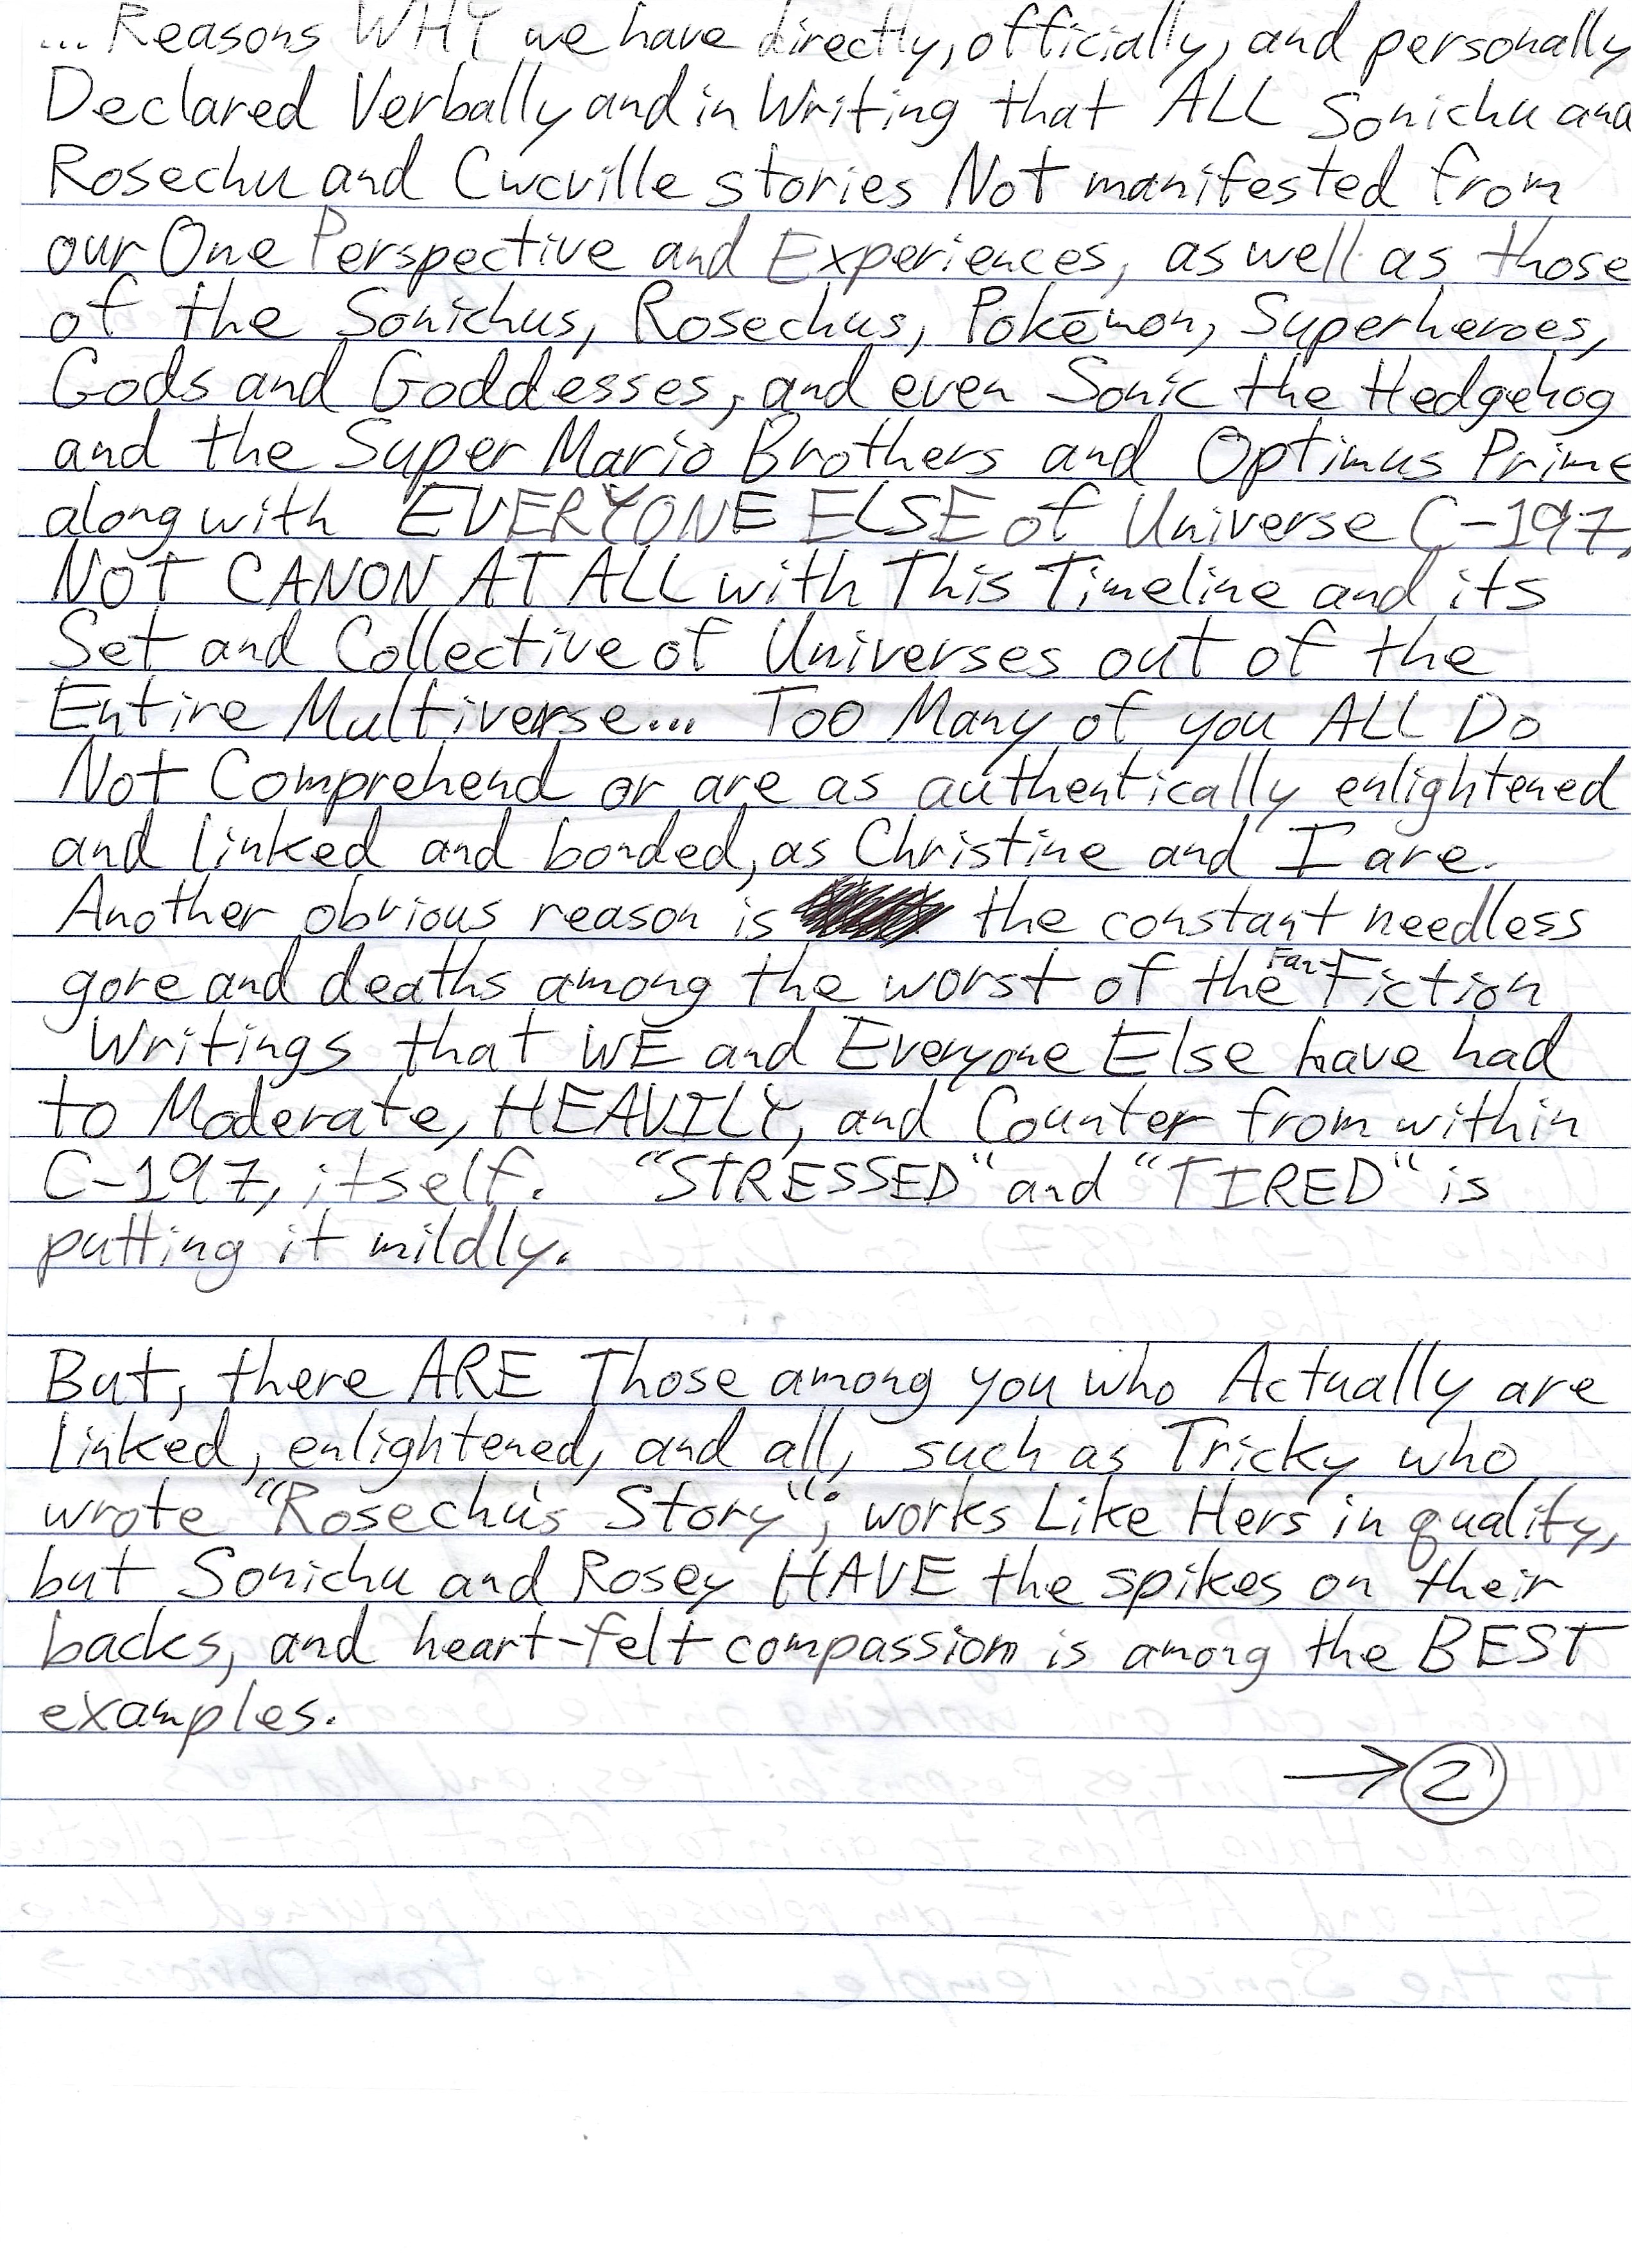 ... Reasons WHY we have directly, officially, and personally
Declared Verbally and in Writing that ALL Sonichu and
Rosechu and Cwcville stories Not manifested from
our One Perspective and Experiences, as well as those
of the Sonichus, Rosechus, Pokémon, Superheroes,
Gods and Goddesses, and even Sonic the Hedgehog
and the Super Mario Brothers and Optimus Prime
along with EVERYONE ELSE of Universe C-197,
NOT CANON AT ALL with This Timeline and its
Set and Collective of Universes out of the
Entire Multiverse... Too Many of you ALL Do
Not Comprehend or are as authentically enlightened
and linked and bonded, as Christine and I are.
Another obvious reason is the constant needless
gore and deaths among the worst of the Fan-Fiction
Writings that WE and Everyone Else have had
to Moderate, HEAVILY, and Counter from within
C-197, itself. "STRESSED" and "TIRED" is
putting it mildly.
But, there ARE Those among you who Actually are
linked, enlightened, and all, such as Tricky who
wrote "Rosechu's Story"; works Like Hers in quality,
but Sonichu and Rosey HAVE the spikes on their
backs, and heart-felt compassion is among the BEST
examples.
→ 2